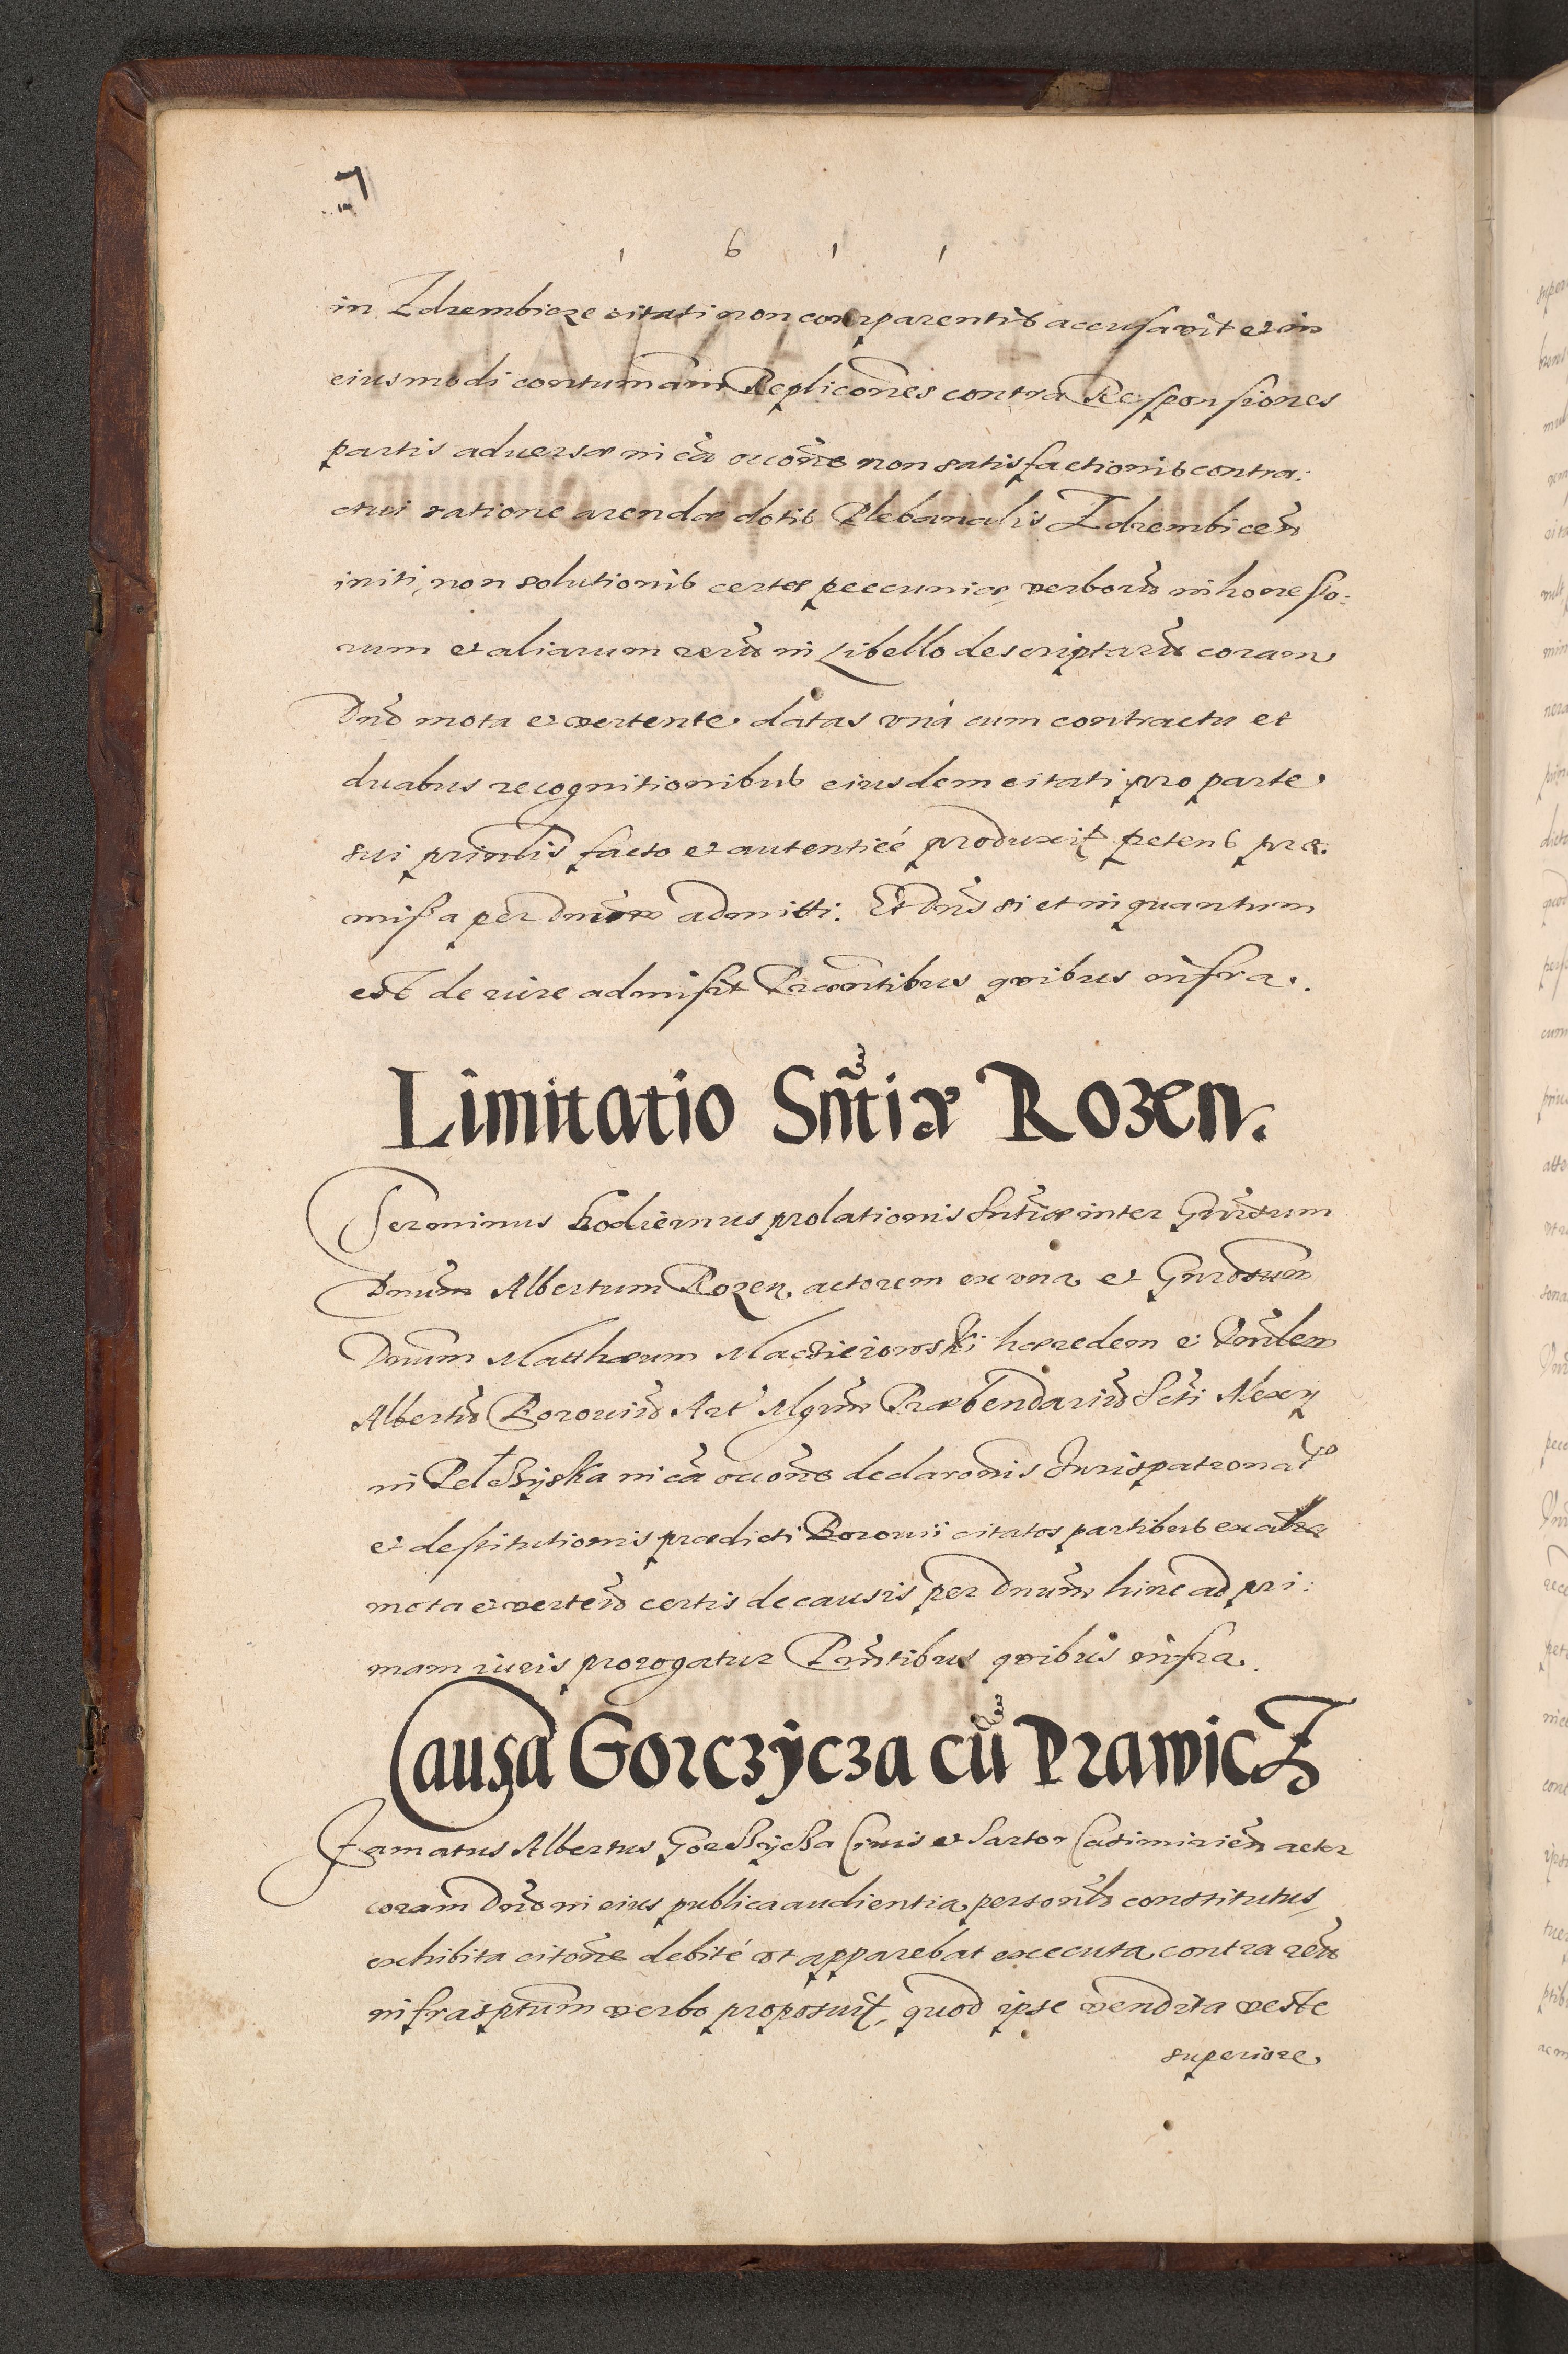 7
1 6 1 1
in Zdrembicze citati non comparentis accusavit et in
eiusmodi contumãm Replicões contra Responsiones
partis adversæ in cã occõne non satisfactionis contra:
ctui ratione arendæ dotis Plebanalis Zdrembiceñ
initi, non solutionis certæ peccuniæ, verborũ inhonesto:
rum et aliarum rerũ in Libello descriptarũ coram
Dnõ mota et vertente datas unà cum contractu et
duabus recognitionibus eiusdem citati pro parte
sui prinlis facto et autenticé produxit petens præ:
missa per Dnum admitti. Et Dns si et in quantum
est de iure admisit Præntibus quibus infra.
Limitatio Sñtiæ Rozen.
Terminus hodiernus prolationis Sntiæ inter Gnrosum
Dnum Albertum Rozen, actorem ex una, et Gnrosum
Dnum Matthæum Maczieiowski hæredem et Vnrlem
Albertũ Borouiũ Art Mgrum Præbendariũ Scti Alexy
in Pelczyska in cã occõne declarõnis Jurispatronatus
et destitutionis prædicti Borouii citatos partibus ex altera
mota et verteñ certis de causis per Dnum hinc ad pri:
mam iuris prorogatur Præntibus quibus infra.
Causa Gorczÿcza cũ PrawicZ
Famatus Albertus Gorczycza Ciuis et Sartor Casimirieñ actor
coram Dnõ in eius publica audientia personlr constitutus,
exhibita citõne debité ut apparebat executa, contra reũ
infrasptum verbo proposuit, quod ipse vendita veste
superiore,